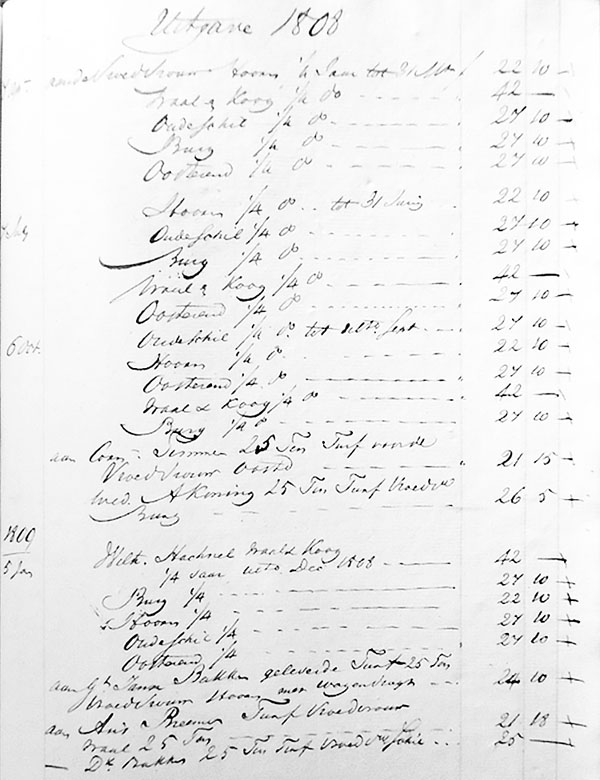 Uitgave 1808
aan de Vroedvrouw Hoorn 1/4 Jaar tot 31 f 22 10 –
Waal & Koog 1/4 do 42 –
Oudeschil 1/4 do 27 10 –
Burg 1/4 do 27 10 –
Oosterend 1/4 do 27 10 –
Hoorn 1/4 do tot 31 Junij 22 10
July Oudeschil 1/4 do 27 10 –
Burg 1/4 do 27 10 –
Waal & Koog 1/4 do 42 –
Oosterend 1/4 do 27 10 –
Oudeschil 1/4 do tot ulto Sept 27 10 –
6 Oct. Hoorn 1/4 do 22 10 –
Oosterend 1/4 do 27 10 –
Waal & Koog 1/4 do 42 –
Burg 1/4 do 27 10 –
aan Corn. 25 Ton Turf voor de
Vroedvrouw Oostd 21 15 –
Wed. A Koning 25 Ton Turf Vroedvr
Burg 26 5 –
1809
5 Jan Wilh. Waal & Koog
1/4 Jaar ulto Dec 1808 42 –
Burg 1/4 27 10 –
Hoorn 1/4 22 10 –
Oudeschil 1/4 27 10 –
Oosterend 1/4 27 10 –
aan Jann Bakker geleverde Turf 25 Ton
Vroedvrouw Hoorn met 24 10 –
aan Ari's Turf Vroedvrouw
Waal 25 Ton 21 18 –
Dk Bakker 25 Ton Turf Vroedvr Schil 25 –